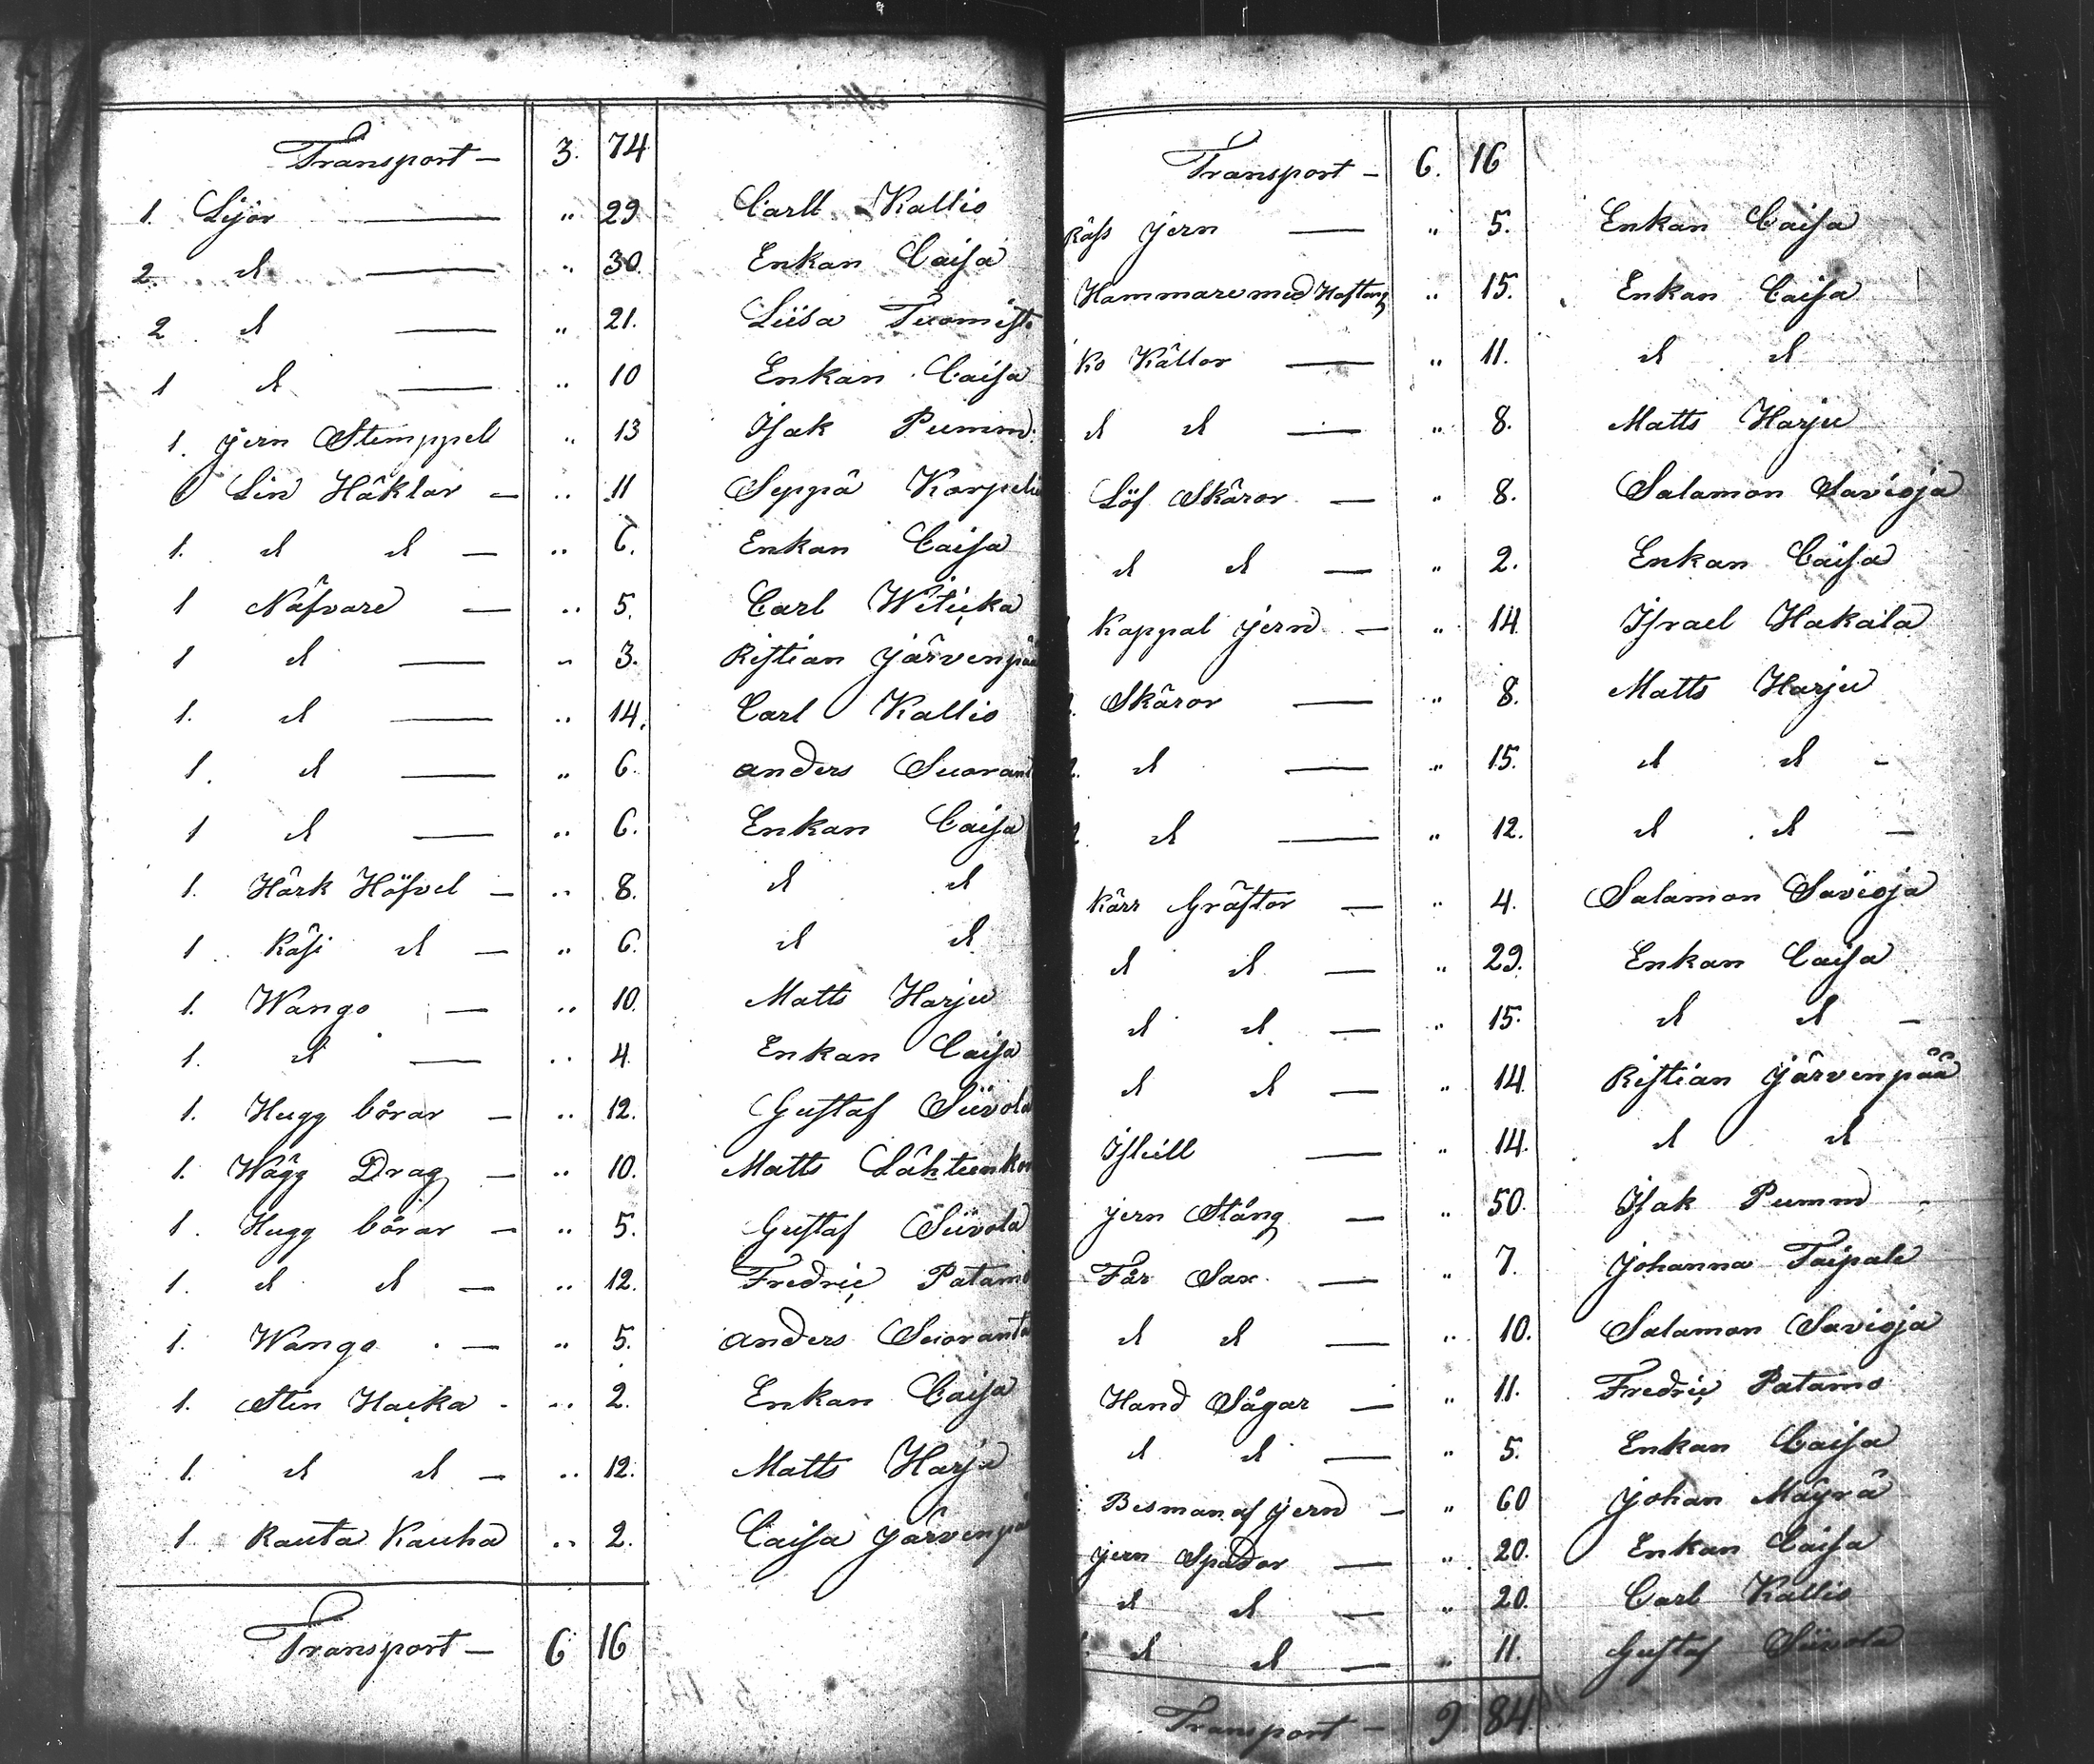 Transport — 3. 74
1. Lijör — " 29 Carll Kallio
2. d — " 30. Enkan Caisa
2 d — " 21. Liisa Tuomist
1 d — " 10 Enkan Caisa
1. jern Stemppel " 13 Isak Pumm
1 Lin Häklar — " 11 Seppä Korpela
1. d d — " 6. Enkan Caisa
1 Näfvare — " 5. Carl Witicka
1 d — " 3. Ristian Järvenpää
1. d — " 14. Carl Kallio
1. d — " 6. anders Suorant
1 d — " 6. Enkan Caisa
1. Härk Höfvel — " 8. d d
1 Käsi d — " 6. d d
1. Wango — " 10. Matts Harju
1. d — " 4. Enkan Caisa
1. Hugg bårar — " 12. Gustaf Siivola
1. Wägg Drag — " 10. Matts Lähteenkor
1. Hugg bårar — " 5. Gustaf Siivola
1. d d — " 12. Fredric Patamo
1. Wango — " 5. anders Suoranta
1. Sten Hacka - " 2. Enkan Caisa
1. d d — " 12. Matts Harju
1 Rauta Kauha " 2. Caisa Järvenpä
Transport — 6 16
Transport — 6. 16
Räfs jern — " 5. Enkan Caisa
Hammare med Hoftång " 15. Enkan Caisa
Ko Källor — " 11. d d
d d — " 8. Matts Harju
Löf Skäror — " 8. Salamon Savioja
d d — " 2. Enkan Caisa
Kappal jern — " 14 Israel Hakala
Skäror — " 8. Matts Harju
d — " 15. d d -
d — " 12. d d —
Kärr Gräftor — " 4. Salamon Savioja
d d — " 29. Enkan Caisa
d d — " 15. d d —
d d — " 14. Ristian Järvenpää
Isbill — " 14. d d
jern Stång — " 50. Isak Pumm -
Får Sax — " 7. Johanna Taipale
d d — " 10. Salamon Savioja
Hand Sågar — " 11. Fredric Patamo
d d — " 5. Enkan Caisa
Besman af jern — " 60 Johan Mäyrä
jern Spador — " 20. Enkan Caisa
d d — " 20. Carl Kallio
d d — " 11. Gustaf Siivola
Transport — 9 84